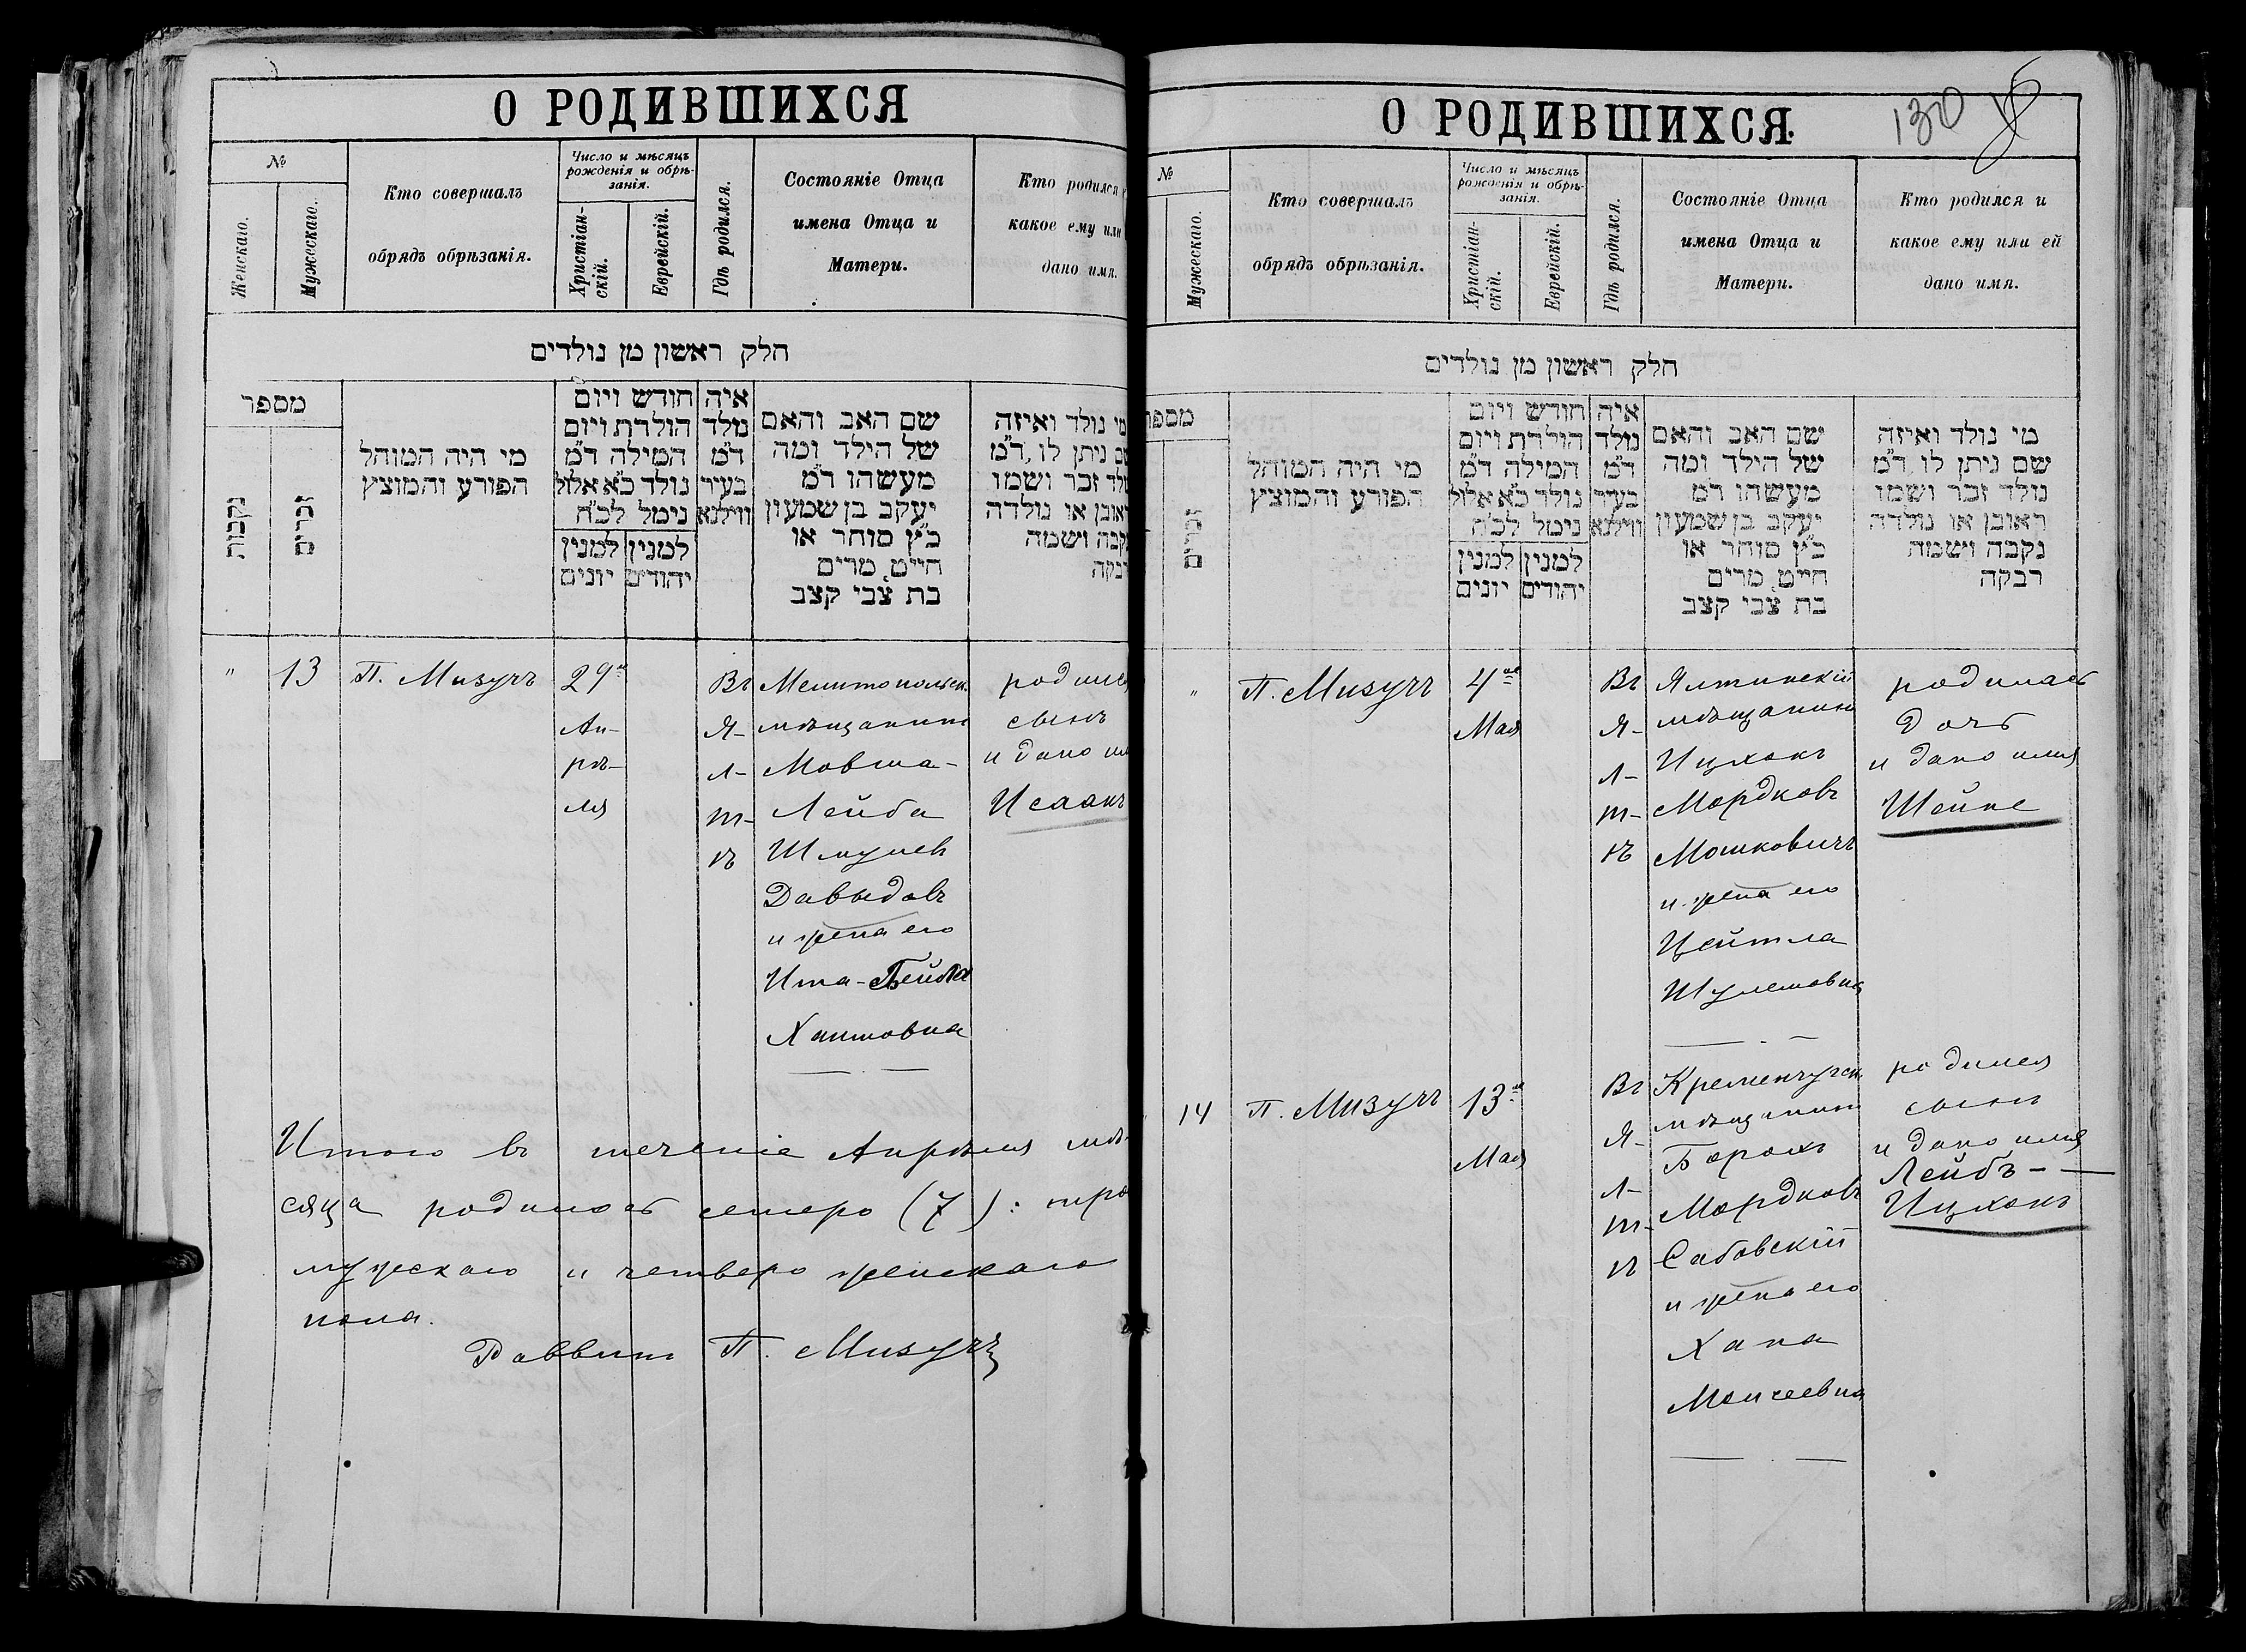 О РОДИВШИХСЯ
№
Женскаго.
Мужескаго.
Кто совершалъ
обрядъ обрѣзанія.
Число и мѣсяцъ
рожденія и обрѣ-
занія.
Христіан-
скій.
Еврейскій.
Гдѣ родился.
Состояніе Отца
имена Отца и
Матери.
Кто родился
какое ему или
дано имя.
חלק ראשון מן נולדים
מספר
נקבות
זכרים
מי היה המוהל
הפורע והמוצץ
חודש ויום
הולדת ויום
המילה ד״מ
נולד כ״א אלול
נימל לכ״ח
למנין
יהודים
למנין
יונים
איה
נולד
ד״מ
בעיר
ווילנא
שם האב והאם
של הילד ומה
מעשהו ד״מ
יעקב בן שמעון
כ״ץ סוחר או
חייט, מרים
בת צבי קצב
מי נולד ואיזה
שם ניתן לו, ד״מ
נולד זכר ושמו
ראובן או נולדה
נקבה ושמה
"
13
П. Мизучъ
29го
Ап-
рѣ-
ля
Въ
Я-
л-
т-
ѣ
Мелитопольск.
мѣщанинъ
Мовша-
Лейба
Шмулев
Давыдовъ
и жена его
Ита-Бейла
Хаимовна
родился
сынъ
и дано им
Исаакъ
Итого въ теченіе Апрѣля мѣ-
сяца родилось семеро (7): трое
мужескаго и четверо женскаго
пола.
Раввинъ П. Мизучъ
О РОДИВШИХСЯ.
130
№
Мужескаго.
Кто совершалъ
обрядъ обрѣзанія.
Число и мѣсяцъ
рожденія и обрѣ-
занія.
Христіан-
скій.
Еврейскій.
Гдѣ родился.
Состояніе Отца
имена Отца и
Матери.
Кто родился и
какое ему или ей
дано имя.
חלק ראשון מן נולדים
מספר
זכרים
מי היה המוהל
הפורע והמוצץ
חודש ויום
הולדת ויום
המילה ד״מ
נולד כ״א אלול
נימל לכ״ח
למנין
יהודים
למנין
יונים
איה
נולד
ד״מ
בעיר
ווילנא
שם האב והאם
של הילד ומה
מעשהו ד״מ
יעקב בן שמעון
כ״ץ סוחר או
חייט, מרים
בת צבי קצב
מי נולד ואיזה
שם ניתן לו, ד״מ
נולד זכר ושמו
ראובן או נולדה
נקבה ושמה
רבקה
"
П. Мизучъ
4го
Мая
Въ
Я-
л-
т-
ѣ
Ялтинскій
мѣщанинъ
Ицхокъ
Мордковъ
Мошковичъ
и жена его
Цейтла
Шулемовна
родилась
дочь
и дано имя
Шейне
14
П. Мизучъ
13го
Мая
Въ
Я-
л-
т-
ѣ
Кременчугск.
мѣщанинъ
Борохъ
Мордковъ
Сабовскій
и жена его
Хана
Моисеевна
родился
сынъ
и дано имя
Лейбъ-
Ицхокъ